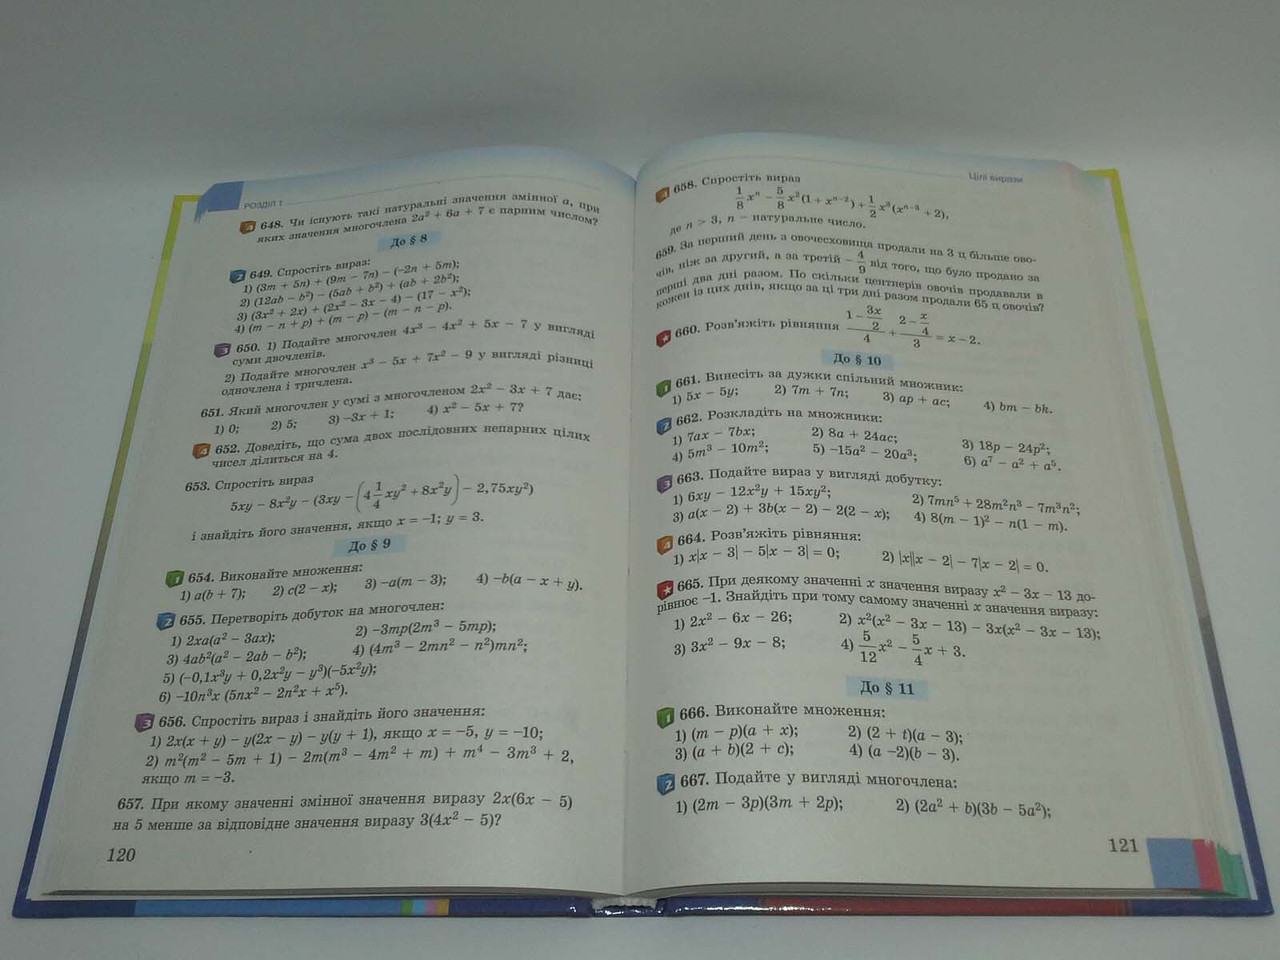 РОЗДІЛ 1
4 648. Чи існують такі натуральні значення змінної a, при
яких значення многочлена 2a² + 6a + 7 є парним числом?
До § 8
2 649. Спростіть вираз:
1) (3m + 5n) + (9m − 7n) − (−2n + 5m);
2) (12ab − b²) − (5ab + b²) + (ab + 2b²);
3) (3x² + 2x) + (2x² − 3x − 4) − (17 − x²);
4) (m − n + p) + (m − p) − (m − n − p).
3 650. 1) Подайте многочлен 4x³ − 4x² + 5x − 7 у вигляді
суми двочленів.
2) Подайте многочлен x³ − 5x + 7x² − 9 у вигляді різниці
одночлена і тричлена.
651. Який многочлен у сумі з многочленом 2x² − 3x + 7 дає:
1) 0; 2) 5; 3) −3x + 1; 4) x² − 5x + 7?
4 652. Доведіть, що сума двох послідовних непарних цілих
чисел ділиться на 4.
653. Спростіть вираз
5xy − 8x²y − (3xy − (4 1/4 xy² + 8x²y) − 2,75xy²)
і знайдіть його значення, якщо x = −1; y = 3.
До § 9
1 654. Виконайте множення:
1) a(b + 7); 2) c(2 − x); 3) −a(m − 3); 4) −b(a − x + y).
2 655. Перетворіть добуток на многочлен:
1) 2xa(a² − 3ax); 2) −3mp(2m³ − 5mp);
3) 4ab²(a² − 2ab − b²); 4) (4m³ − 2mn² − n²)mn²;
5) (−0,1x³y + 0,2x²y − y³)(−5x²y);
6) −10n³x (5nx² − 2n²x + x⁵).
3 656. Спростіть вираз і знайдіть його значення:
1) 2x(x + y) − y(2x − y) − y(y + 1), якщо x = −5, y = −10;
2) m²(m² − 5m + 1) − 2m(m³ − 4m² + m) + m⁴ − 3m³ + 2,
якщо m = −3.
657. При якому значенні змінної значення виразу 2x(6x − 5)
на 5 менше за відповідне значення виразу 3(4x² − 5)?
120
Цілі вирази
4 658. Спростіть вираз
1/8 xⁿ − 5/8 x²(1 + xⁿ⁻²) + 1/2 x³(xⁿ⁻³ + 2),
де n > 3, n − натуральне число.
659. За перший день з овочесховища продали на 3 ц більше ово-
чів, ніж за другий, а за третій − 4/9 від того, що було продано за
перші два дні разом. По скільки центнерів овочів продавали в
кожен із цих днів, якщо за ці три дні разом продали 65 ц овочів?
★ 660. Розв'яжіть рівняння (1 − 3x/2)/4 + (2 − x/4)/3 = x − 2.
До § 10
1 661. Винесіть за дужки спільний множник:
1) 5x − 5y; 2) 7m + 7n; 3) ap + ac; 4) bm − bk.
2 662. Розкладіть на множники:
1) 7ax − 7bx; 2) 8a + 24ac; 3) 18p − 24p²;
4) 5m³ − 10m²; 5) −15a² − 20a³; 6) a⁷ − a² + a⁵.
3 663. Подайте вираз у вигляді добутку:
1) 6xy − 12x²y + 15xy²; 2) 7mn⁵ + 28m²n³ − 7m³n²;
3) a(x − 2) + 3b(x − 2) − 2(2 − x); 4) 8(m − 1)² − n(1 − m).
4 664. Розв'яжіть рівняння:
1) x|x − 3| − 5|x − 3| = 0; 2) |x||x − 2| − 7|x − 2| = 0.
★ 665. При деякому значенні x значення виразу x² − 3x − 13 до-
рівнює −1. Знайдіть при тому самому значенні x значення виразу:
1) 2x² − 6x − 26; 2) x²(x² − 3x − 13) − 3x(x² − 3x − 13);
3) 3x² − 9x − 8; 4) 5/12 x² − 5/4 x + 3.
До § 11
1 666. Виконайте множення:
1) (m − p)(a + x); 2) (2 + t)(a − 3);
3) (a + b)(2 + c); 4) (a −2)(b − 3).
2 667. Подайте у вигляді многочлена:
1) (2m − 3p)(3m + 2p); 2) (2a² + b)(3b − 5a²);
121